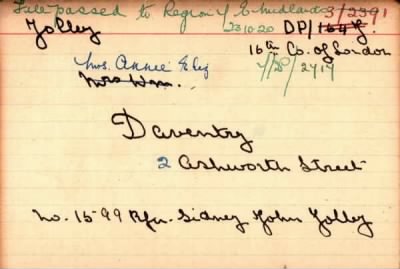 File passed to Region 4 E. Midlands 3/2391
23.10.20 DP/164 F.
Jolley 16th Co. of London
Mrs. Annie Eliz 4/D/2717
Mrs Wm.
Daventry
2 Ashworth Street
No. 1599 Rfn. Sidney John Jolley